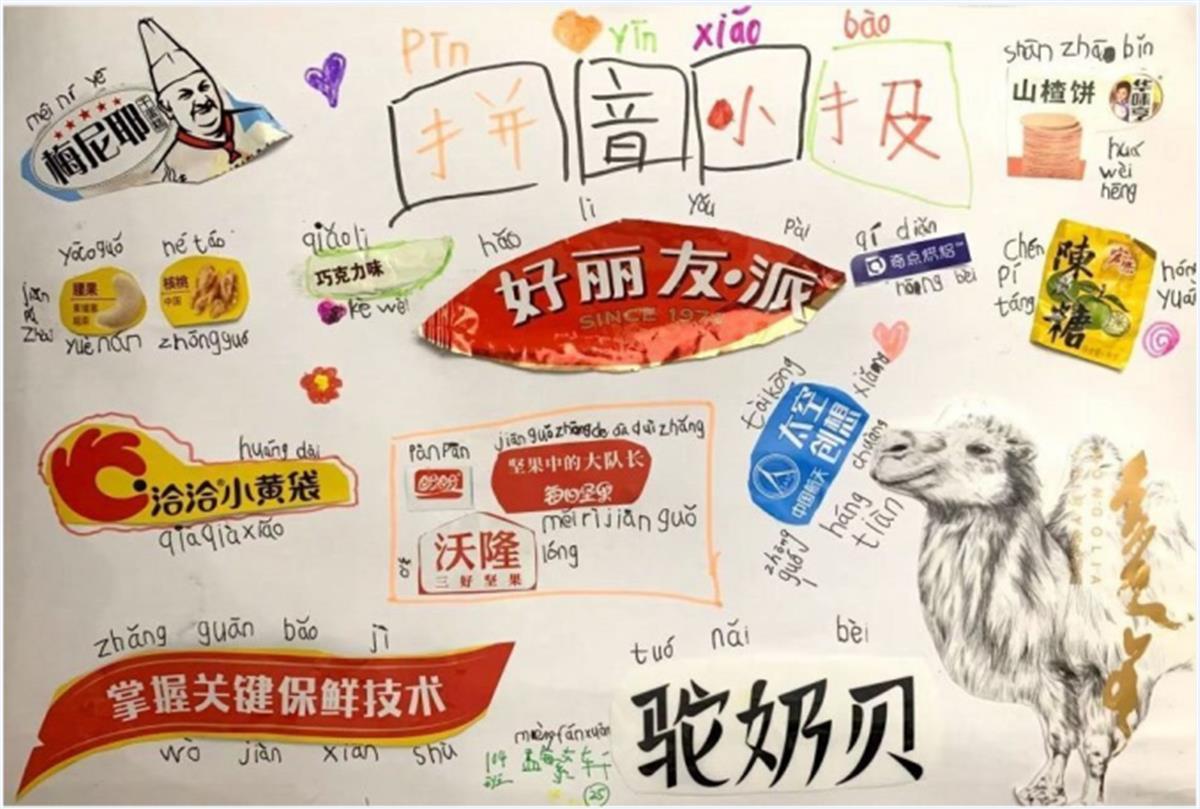 pīn yīn xiǎo bào
拼音小报
méi ní yē
梅尼耶
shān zhā bǐn
山楂饼
华味亨
huá wèi hēng
yāo guǒ
腰果
yuè nán
hé táo
核桃
中国
zhōng guó
qiǎo lì
巧克力味
kè wèi
hǎo lì yǒu pài
好丽友·派
SINCE 1974
qí diǎn
奇点烘焙
hōng bèi
chén pí táng
陳皮糖
huáng dài
洽洽小黄袋
qià qià xiǎo
pàn pān
盼盼
jiān guǒ zhōng de dà duì zhǎng
坚果中的大队长
每日坚果
měi rì jiān guǒ
沃隆
lóng
三好坚果
tài kōng
太空创想
中国航天
xiǎng
chuàng
háng tiān
zhōng guó
zhǎng guān bǎo jì
掌握关键保鲜技术
wò jiàn xiān shù
tuó nǎi bèi
驼奶贝
104班
25